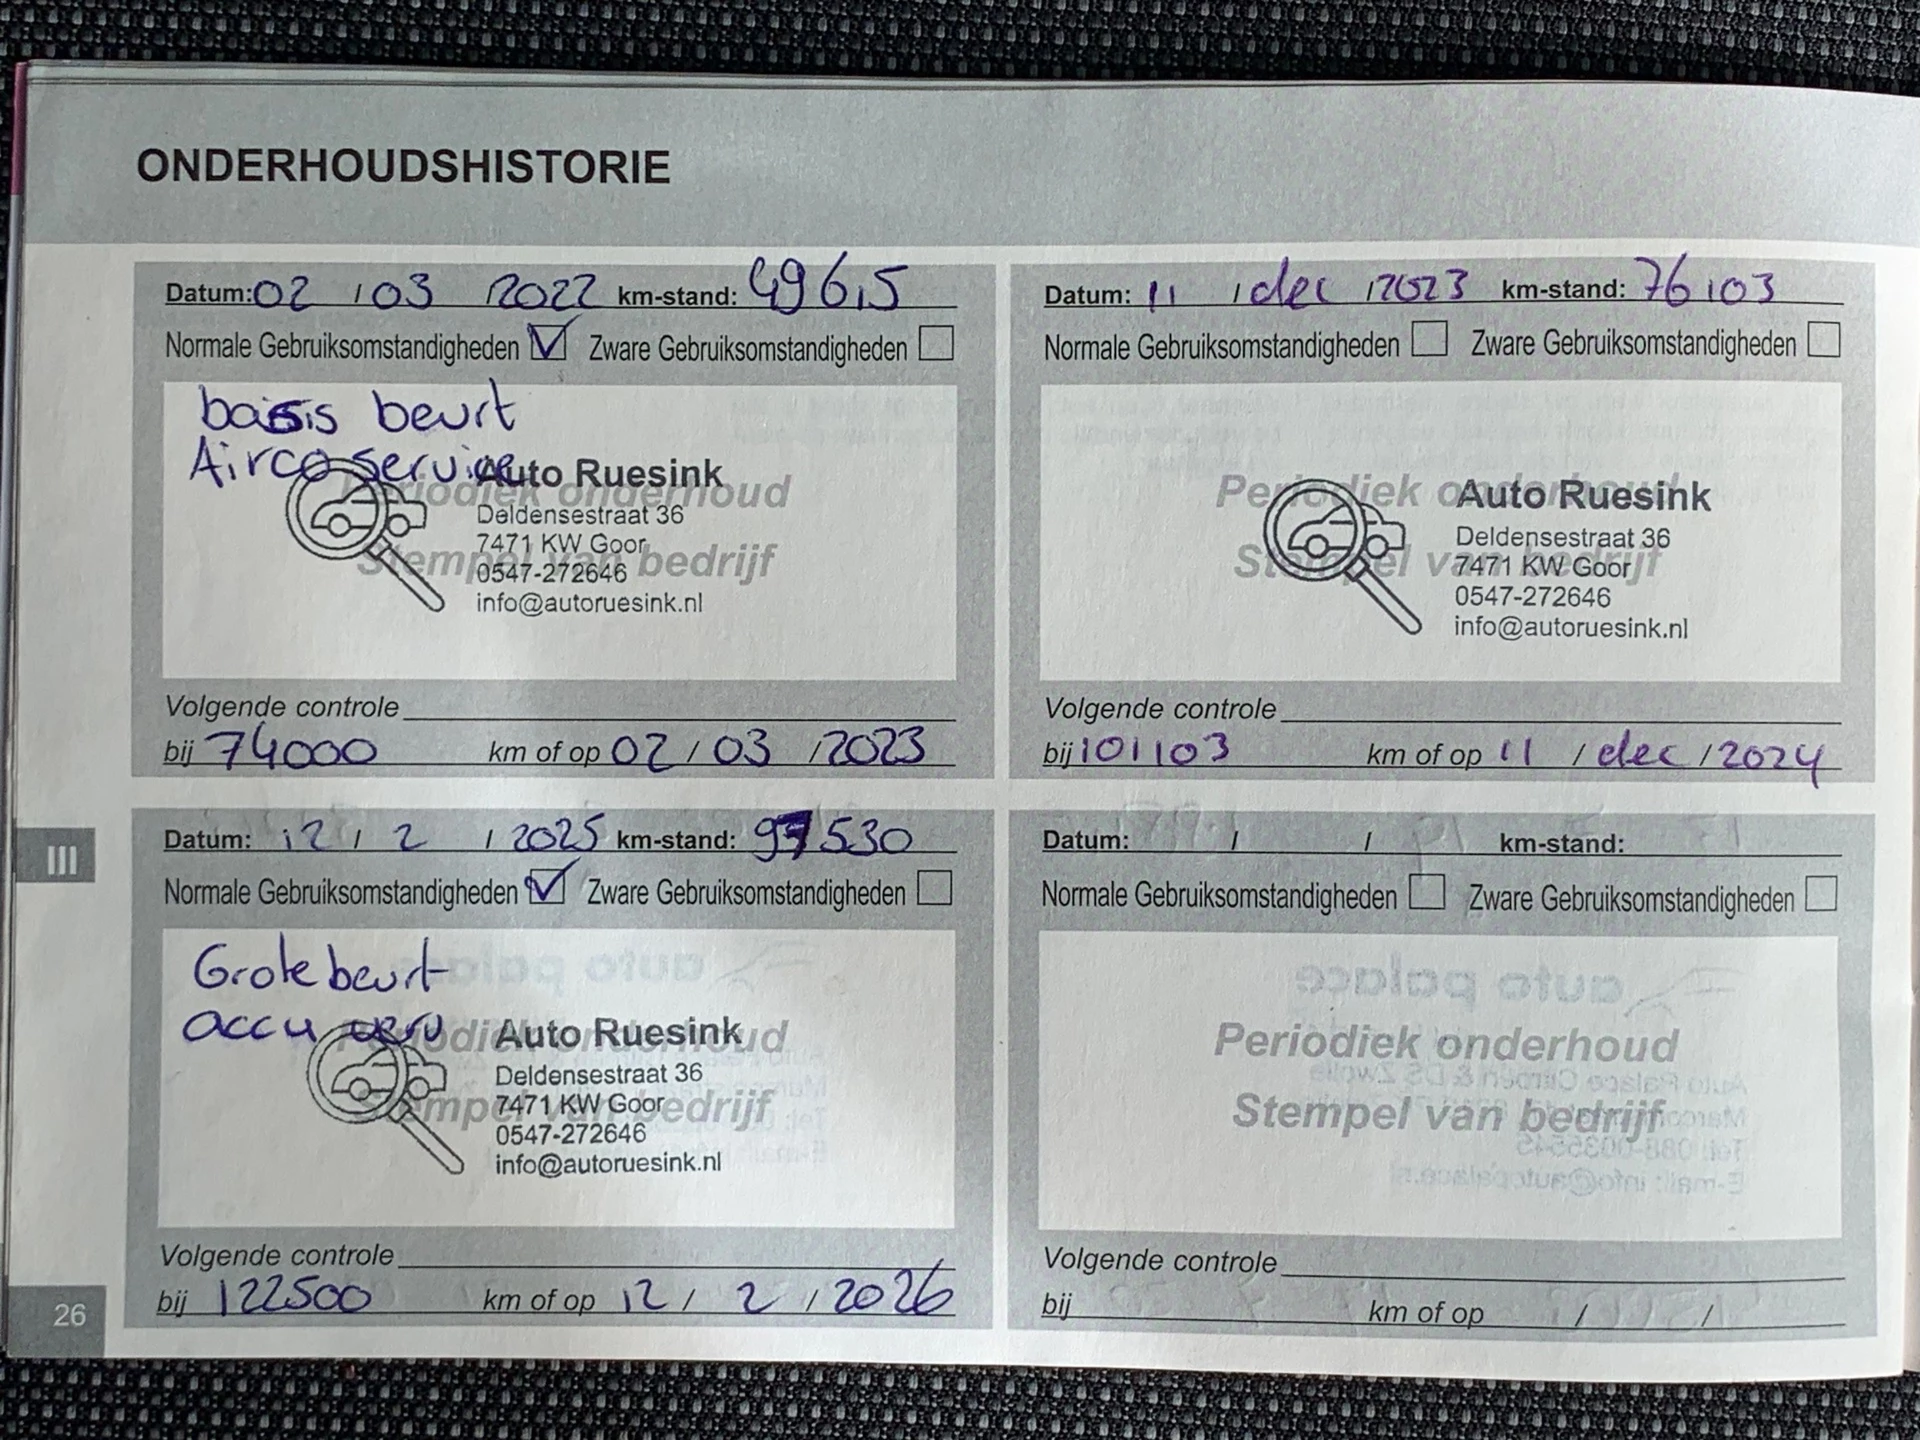 ONDERHOUDSHISTORIE
Datum: 02 / 03 / 2022 km-stand: 49615
Normale Gebruiksomstandigheden Zware Gebruiksomstandigheden
basis beurt
Airco service
Periodiek onderhoud
Stempel van bedrijf
Auto Ruesink
Deldensestraat 36
7471 KW Goor
0547-272646
info@autoruesink.nl
Volgende controle
bij 74000 km of op 02 / 03 / 2023
Datum: 11 / dec / 2023 km-stand: 76103
Normale Gebruiksomstandigheden Zware Gebruiksomstandigheden
Periodiek onderhoud
Stempel van bedrijf
Auto Ruesink
Deldensestraat 36
7471 KW Goor
0547-272646
info@autoruesink.nl
Volgende controle
bij 101103 km of op 11 / dec / 2024
Datum: 12 / 2 / 2025 km-stand: 97530
Normale Gebruiksomstandigheden Zware Gebruiksomstandigheden
Grote beurt
accu verv
Periodiek onderhoud
Stempel van bedrijf
Auto Ruesink
Deldensestraat 36
7471 KW Goor
0547-272646
info@autoruesink.nl
Volgende controle
bij 122500 km of op 12 / 2 / 2026
Datum: / / km-stand:
Normale Gebruiksomstandigheden Zware Gebruiksomstandigheden
Periodiek onderhoud
Stempel van bedrijf
Volgende controle
bij km of op / /
III
26